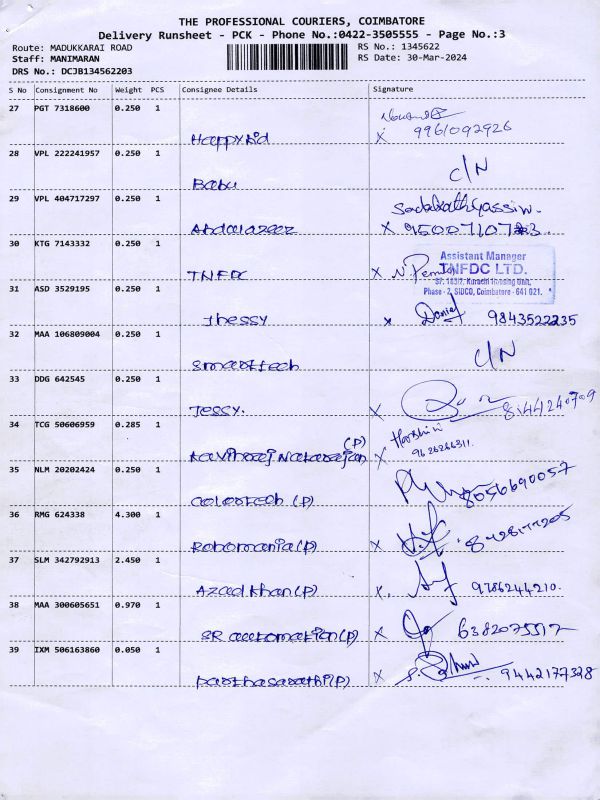 THE PROFESSIONAL COURIERS, COIMBATORE
Delivery Runsheet - PCK - Phone No.:0422-3505555 - Page No.:3
Route: MADUKKARAI ROAD RS No.: 1345622
Staff: MANIMARAN RS Date: 30-Mar-2024
DRS No.: DCJB134562203
S No Consignment No Weight PCS Consignee Details Signature
27 PGT 7318600 0.250 1
Happykid X 9961092926
28 VPL 222241957 0.250 1 C/N
Babu
29 VPL 404717297 0.250 1
Abdulazeez X
30 KTG 7143332 0.250 1
Assistant Manager
TNFDC X TNFDC LTD.
Phase - 2, SIDCO, Coimbatore - 641 021.
31 ASD 3529195 0.250 1
Jhessy X Daniel 9843522235
32 MAA 106809004 0.250 1 C/N
Smarttech
33 DDG 642545 0.250 1
Jessy. X 8144240709
34 TCG 50606959 0.285 1
Kavihraj Natarajan (P) X 9626266311.
35 NLM 20202424 0.250 1
Colortech (P) 8056690057
36 RMG 624338 4.300 1
Robomania (P) X
37 SLM 342792913 2.450 1
Azad Khan (P) X. 9786244210.
38 MAA 300605651 0.970 1
SR automation (P) X 6382075517
39 IXM 506163860 0.050 1
Parthasarathi (P) X 9442177328